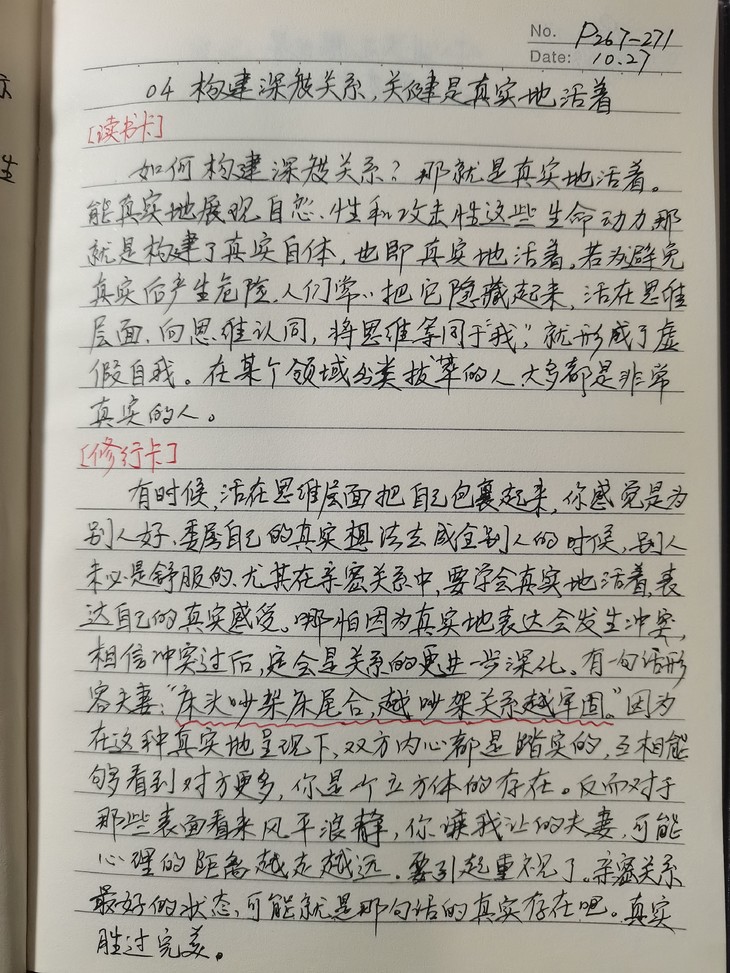 No. P267-271
Date: 10.27
04 构建深度关系,关健是真实地活着
[读书卡]
如何构建深度关系?那就是真实地活着。
能真实地展现自恋、性和攻击性这些生命动力那
就是构建了真实自体,也即真实地活着。若为避免
真实后产生危险,人们常常把它隐藏起来,活在思维
层面、向思维认同,将思维等同于“我”,就形成了虚
假自我。在某个领域出类拔萃的人大多都是非常
真实的人。
[修行卡]
有时候,活在思维层面把自己包裹起来,你感觉是为
别人好、委屈自己的真实想法去成全别人的时候,别人
未必是舒服的、尤其在亲密关系中,要学会真实地活着,表
达自己的真实感受。哪怕因为真实地表达会发生冲突,
相信冲突过后,定会是关系的更进一步深化。有一句话形
容夫妻:“床头吵架床尾合,越吵架关系越牢固。”因为
在这种真实地呈现下,双方内心都是踏实的,互相能
够看到对方更多,你是个立方体的存在。反而对于
那些表面看来风平浪静,你谦我让的夫妻,可能
心理的距离越走越远。要引起重视了。亲密关系
最好的状态,可能就是那句话的真实存在吧。真实
胜过完美。